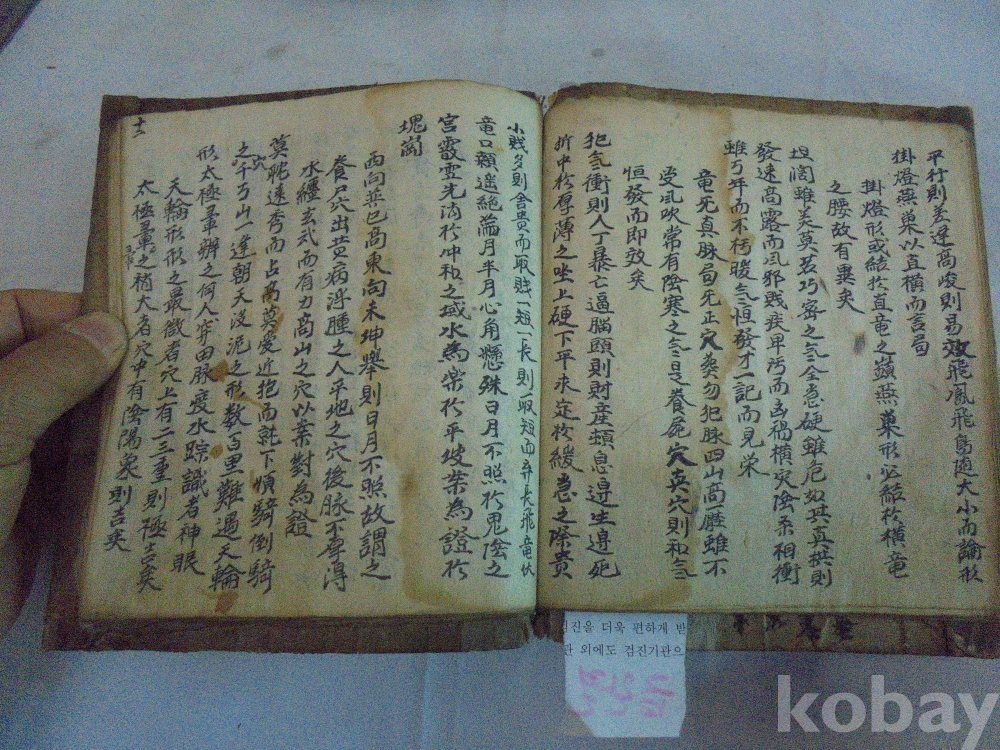 平行則差達高峻則易效飛鳳飛鳥隨大小而論形
掛燈燕巢以直橫而言局
掛燈形或結於直竜之燕巢形必結於橫竜
之腰故有異矣
坦闊雖差莫若巧密之气全急硬雖危如其真拱則
發速高露而風邪賤疾卑汚而凶禍橫灾陰柔相衝
雖丂年而不朽暖气恒發才一記而見栄
竜死真脉局死正穴葬勿犯脉四山高一壓雖不
受風吹常有陰寒之气是養屍穴吳穴則和气
恒發而即效矣
犯气衝則人丁暴亡逼腦頤則財産頹息邉生邉死
折中於厚薄之坐上硬下平求定於緩急之除貴
小賤多則舍貴而取賤一短一長則取短而弃長飛竜伏
竜口頷遥絶端月半月心角懸殊日月不照於鬼陰之
宮霞雲光流於冲和之域水為栄於平坡案為證於
塊崗
西向巽巳高東向未坤舉則日月不照故謂之
養尸穴出黄病浮腫之人平地之穴後脉不厚得
水纏玄武而有力高山之穴以案對為證
莫眺速秀而占高莫愛近抱而就下順騎倒騎
之穴千丂山一達朝天没泥之形数百里難遇天輪
形太極暈辨之何人穿田脉度水踪識者神眼
天輪形形之最微者穴上有二三重則極吉矣
太極暈之稍大者穴中有陰陽象則吉矣
十二
검진을 더욱 편하게 받
관 외에도 검진기관으
kobay